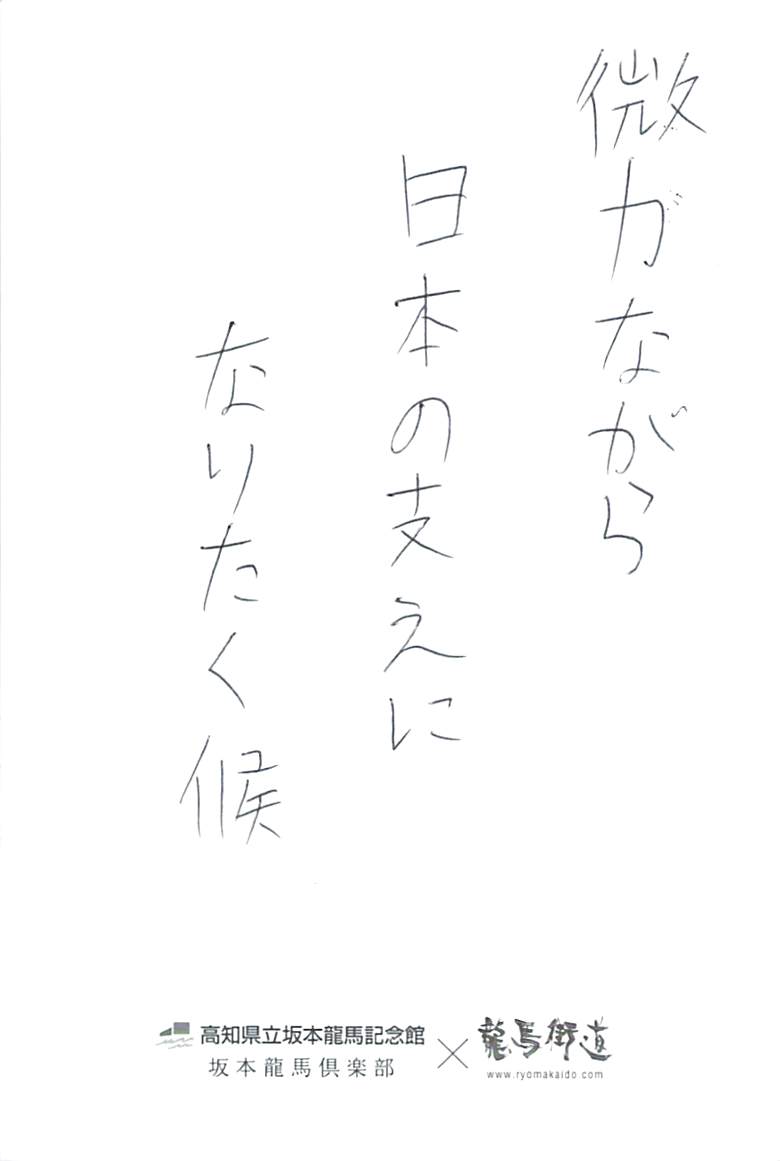 微力ながら
日本の支えに
なりたく候
高知県立坂本龍馬記念館
坂本龍馬倶楽部
×
龍馬街道
www.ryomakaido.com